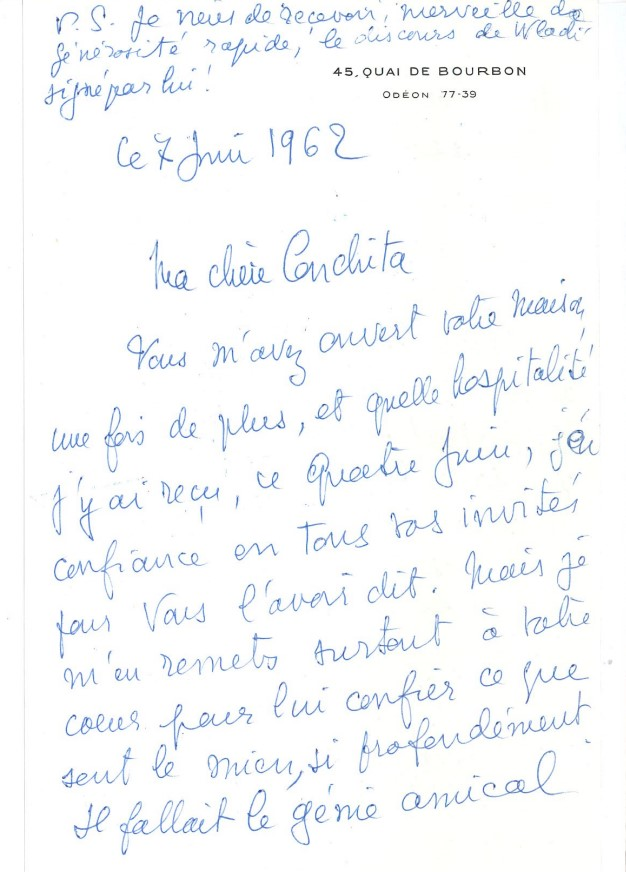 P.S. Je viens de recevoir, merveille de
générosité rapide, le discours de Wladi
signé par lui!
45, QUAI DE BOURBON
ODÉON 77-39
Ce 7 Juin 1962
Ma chère Conchita
Vous m'avez ouvert votre maison,
une fois de plus, et quelle hospitalité
j'y ai reçu, ce quatre Juin, j'ai
confiance en tous vos invités
pour vous l'avoir dit. Mais je
m'en remets surtout à votre
coeur pour lui confier ce que
sent le mien, si profondément
Il fallait le génie amical